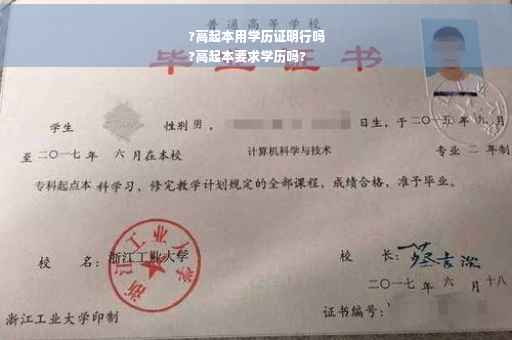 普通高等学校
?高起本用学历证明行吗
毕业证书
?高起本要求学历吗?
学生 性别 男 , 日生,于二〇一五年九月
至二〇一七年 六月在本校 计算机科学与技术 专业 二 年制
专科起点本 科学习,修完教学计划规定的全部课程,成绩合格,准予毕业。
浙江工业大学
校 名: 浙江工业大学 校 长:
二〇一七年 六 月十八
浙江工业大学印制 证书编号: